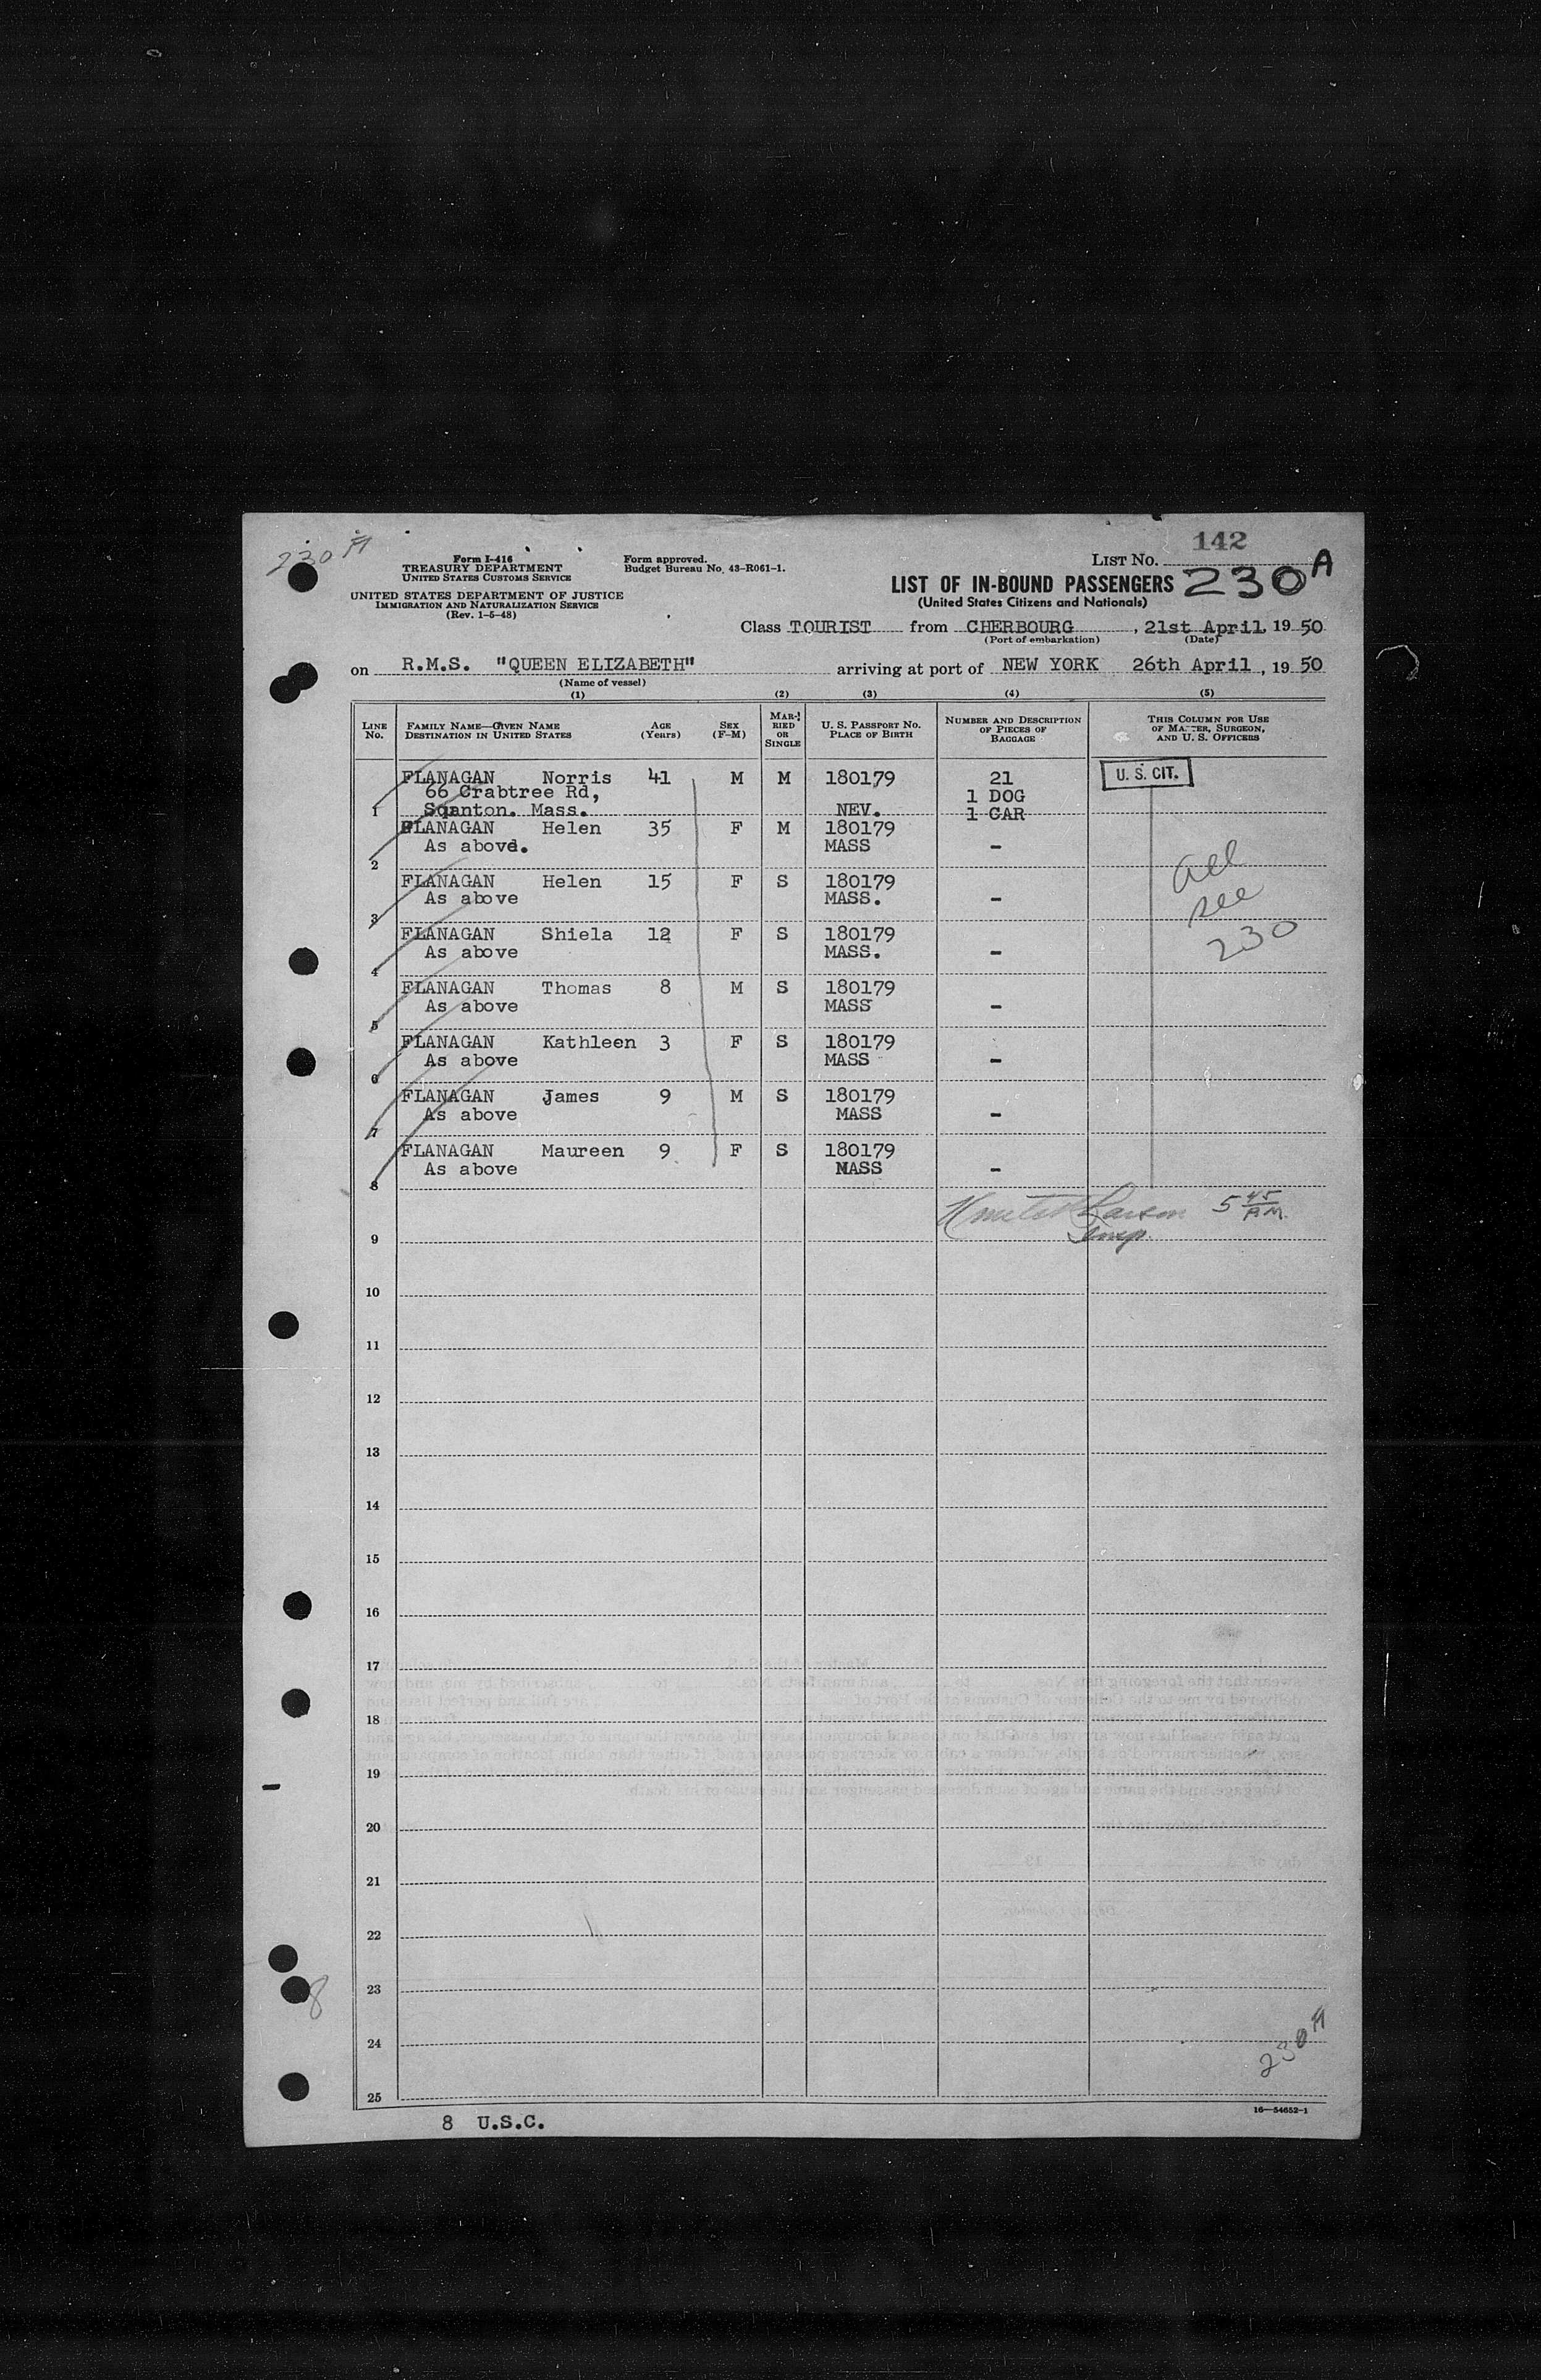 142
230 A
Form I-416
TREASURY DEPARTMENT
UNITED STATES CUSTOMS SERVICE
Form approved.
Budget Bureau No. 43-R061-1.
LIST NO.
230 A
UNITED STATES DEPARTMENT OF JUSTICE
IMMIGRATION AND NATURALIZATION SERVICE
(Rev. 1-5-48)
LIST OF IN-BOUND PASSENGERS
(United States Citizens and Nationals)
Class TOURIST from CHERBOURG, 21st April, 19 50
(Port of embarkation) (Date)
on R.M.S. "QUEEN ELIZABETH" arriving at port of NEW YORK 26th April, 19 50
(Name of vessel)
(1) (2) (3) (4) (5)
LINE NO. FAMILY NAME—GIVEN NAME DESTINATION IN UNITED STATES AGE (Years) SEX (F-M) MARRIED OR SINGLE U. S. PASSPORT NO. PLACE OF BIRTH NUMBER AND DESCRIPTION OF PIECES OF BAGGAGE THIS COLUMN FOR USE OF MASTER, SURGEON, AND U. S. OFFICERS
FLANAGAN Norris 41 M M 180179 21 U. S. CIT.
66 Crabtree Rd, 1 DOG
1 Sqanton. Mass. NEV. 1 CAR
FLANAGAN Helen 35 F M 180179
2 As above. MASS -
FLANAGAN Helen 15 F S 180179
3 As above MASS. -
all
see
230
FLANAGAN Shiela 12 F S 180179
4 As above MASS. -
FLANAGAN Thomas 8 M S 180179
5 As above MASS -
FLANAGAN Kathleen 3 F S 180179
6 As above MASS -
FLANAGAN James 9 M S 180179
7 As above MASS -
FLANAGAN Maureen 9 F S 180179
8 As above MASS -
Larson 5 45 A.M.
Insp.
9
10
11
12
13
14
15
16
17
18
19
20
21
22
23
8
24
230 A
25
16—54652-1
8 U.S.C.